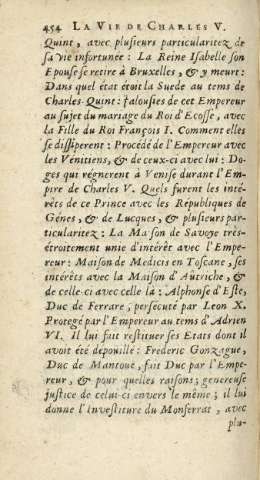 454 LA VIE DE CHARLES V.
Quint, avec plusieurs particularitez de
sa vie infortunée : La Reine Isabelle son
Epouse se retire à Bruxelles, & y meurt :
Dans quel état étoit la Suede au tems de
Charles-Quint : jalousies de cet Empereur
au sujet du mariage du Roi d'Ecosse, avec
la Fille du Roi François I. Comment elles
se dissiperent : Procédé de l'Empereur avec
les Vénitiens, & de ceux-ci avec lui : Do-
ges qui régnerent à Venise durant l'Em-
pire de Charles V. Quels furent les inté-
rêts de ce Prince avec les Républiques de
Génes, & de Lucques, & plusieurs par-
ticularitez : La Maison de Savoye très-
étroitement unie d'intérêt avec l'Empe-
reur : Maison de Medicis en Toscane, ses
intérêts avec la Maison d'Autriche, &
de celle-ci avec celle là : Alphonse d'Este,
Duc de Ferrare, persécuté par Leon X.
Protegé par l'Empereur au tems d'Adrien
VI. Il lui fait restituer ses Etats dont il
avoit été dépouillé : Frederic Gonzague,
Duc de Mantoue, fait Duc par l'Empe-
reur, & pour quelles raisons; genereuse
justice de celui-ci envers le même ; il lui
donne l'Investiture du Monferrat, avec
plu-